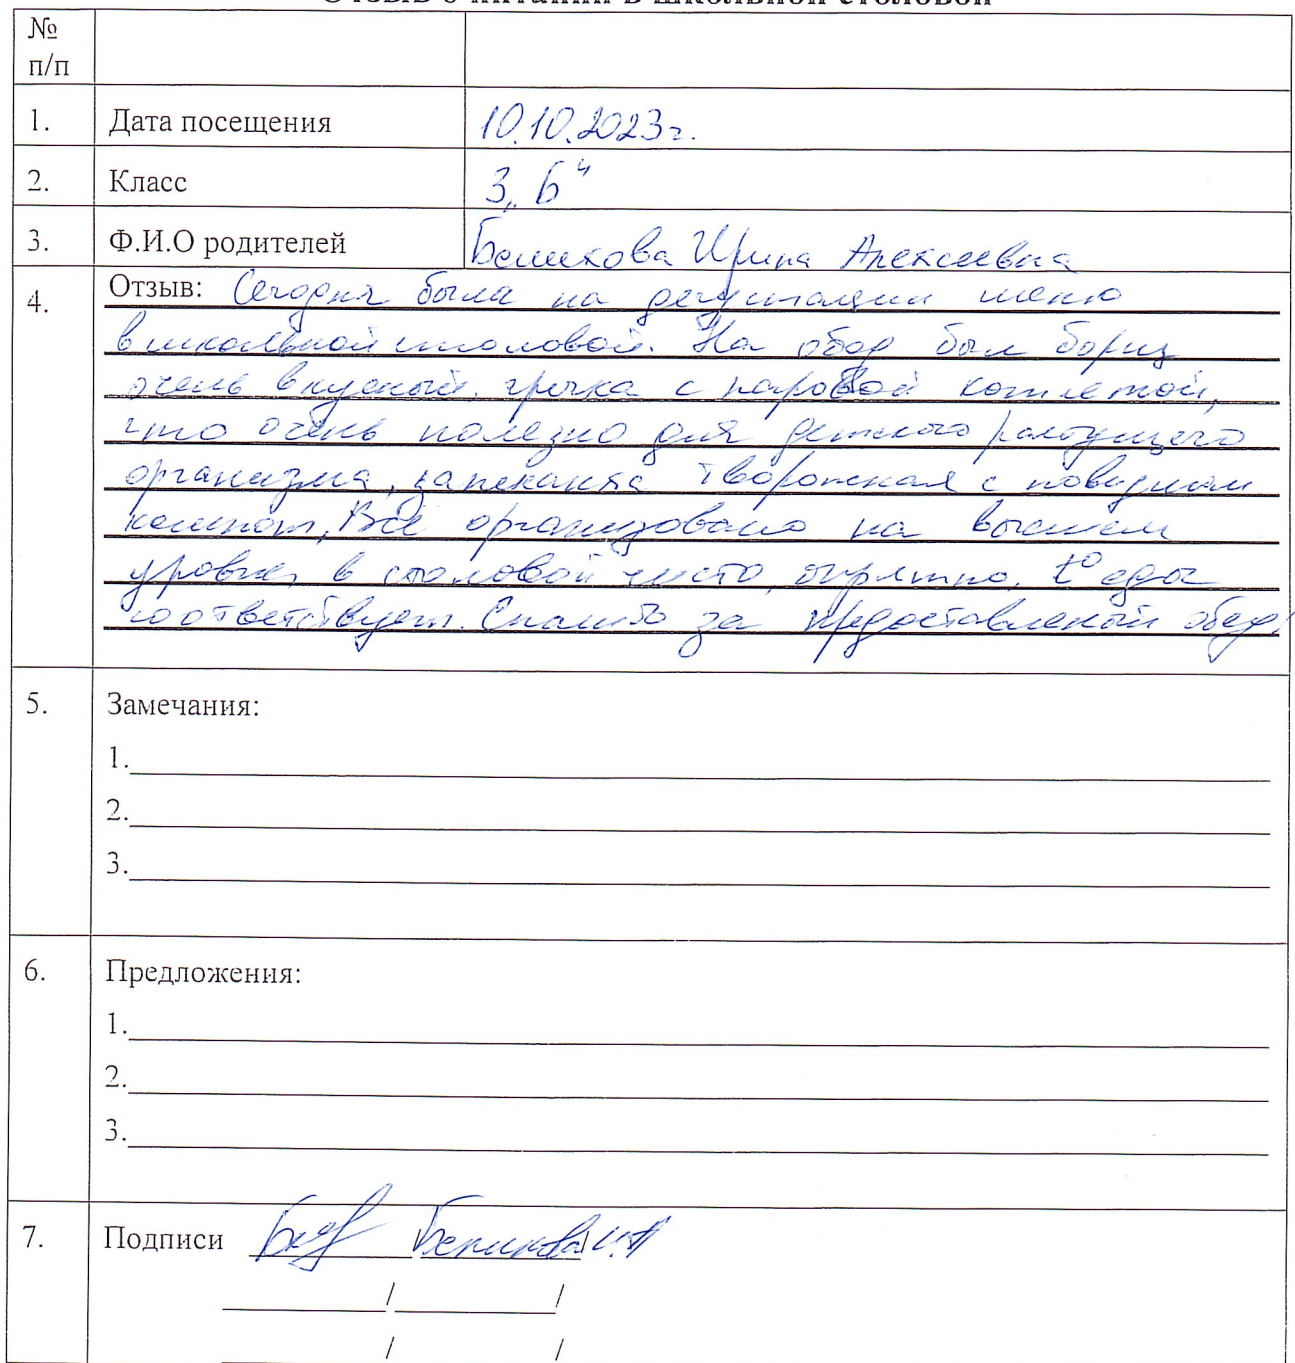 Отзыв о питании в школьной столовой
№
п/п
1. Дата посещения 10.10.2023г.
2. Класс 3 „Б“
3. Ф.И.О родителей Беликова Ирина Алексеевна
4. Отзыв: Сегодня была на дегустации меню
в школьной столовой. На обед был борщ
очень вкусный, гречка с паровой котлетой,
что очень полезно для детского растущего
организма, запеканка творожная с повидлом
компот, Всё организовано на высшем
уровне, в столовой чисто, опрятно, t° еды
соответствует. Спасибо за предоставленый обед!
5. Замечания:
1.
2.
3.
6. Предложения:
1.
2.
3.
7. Подписи / Беликова И.А
/ /
/ /